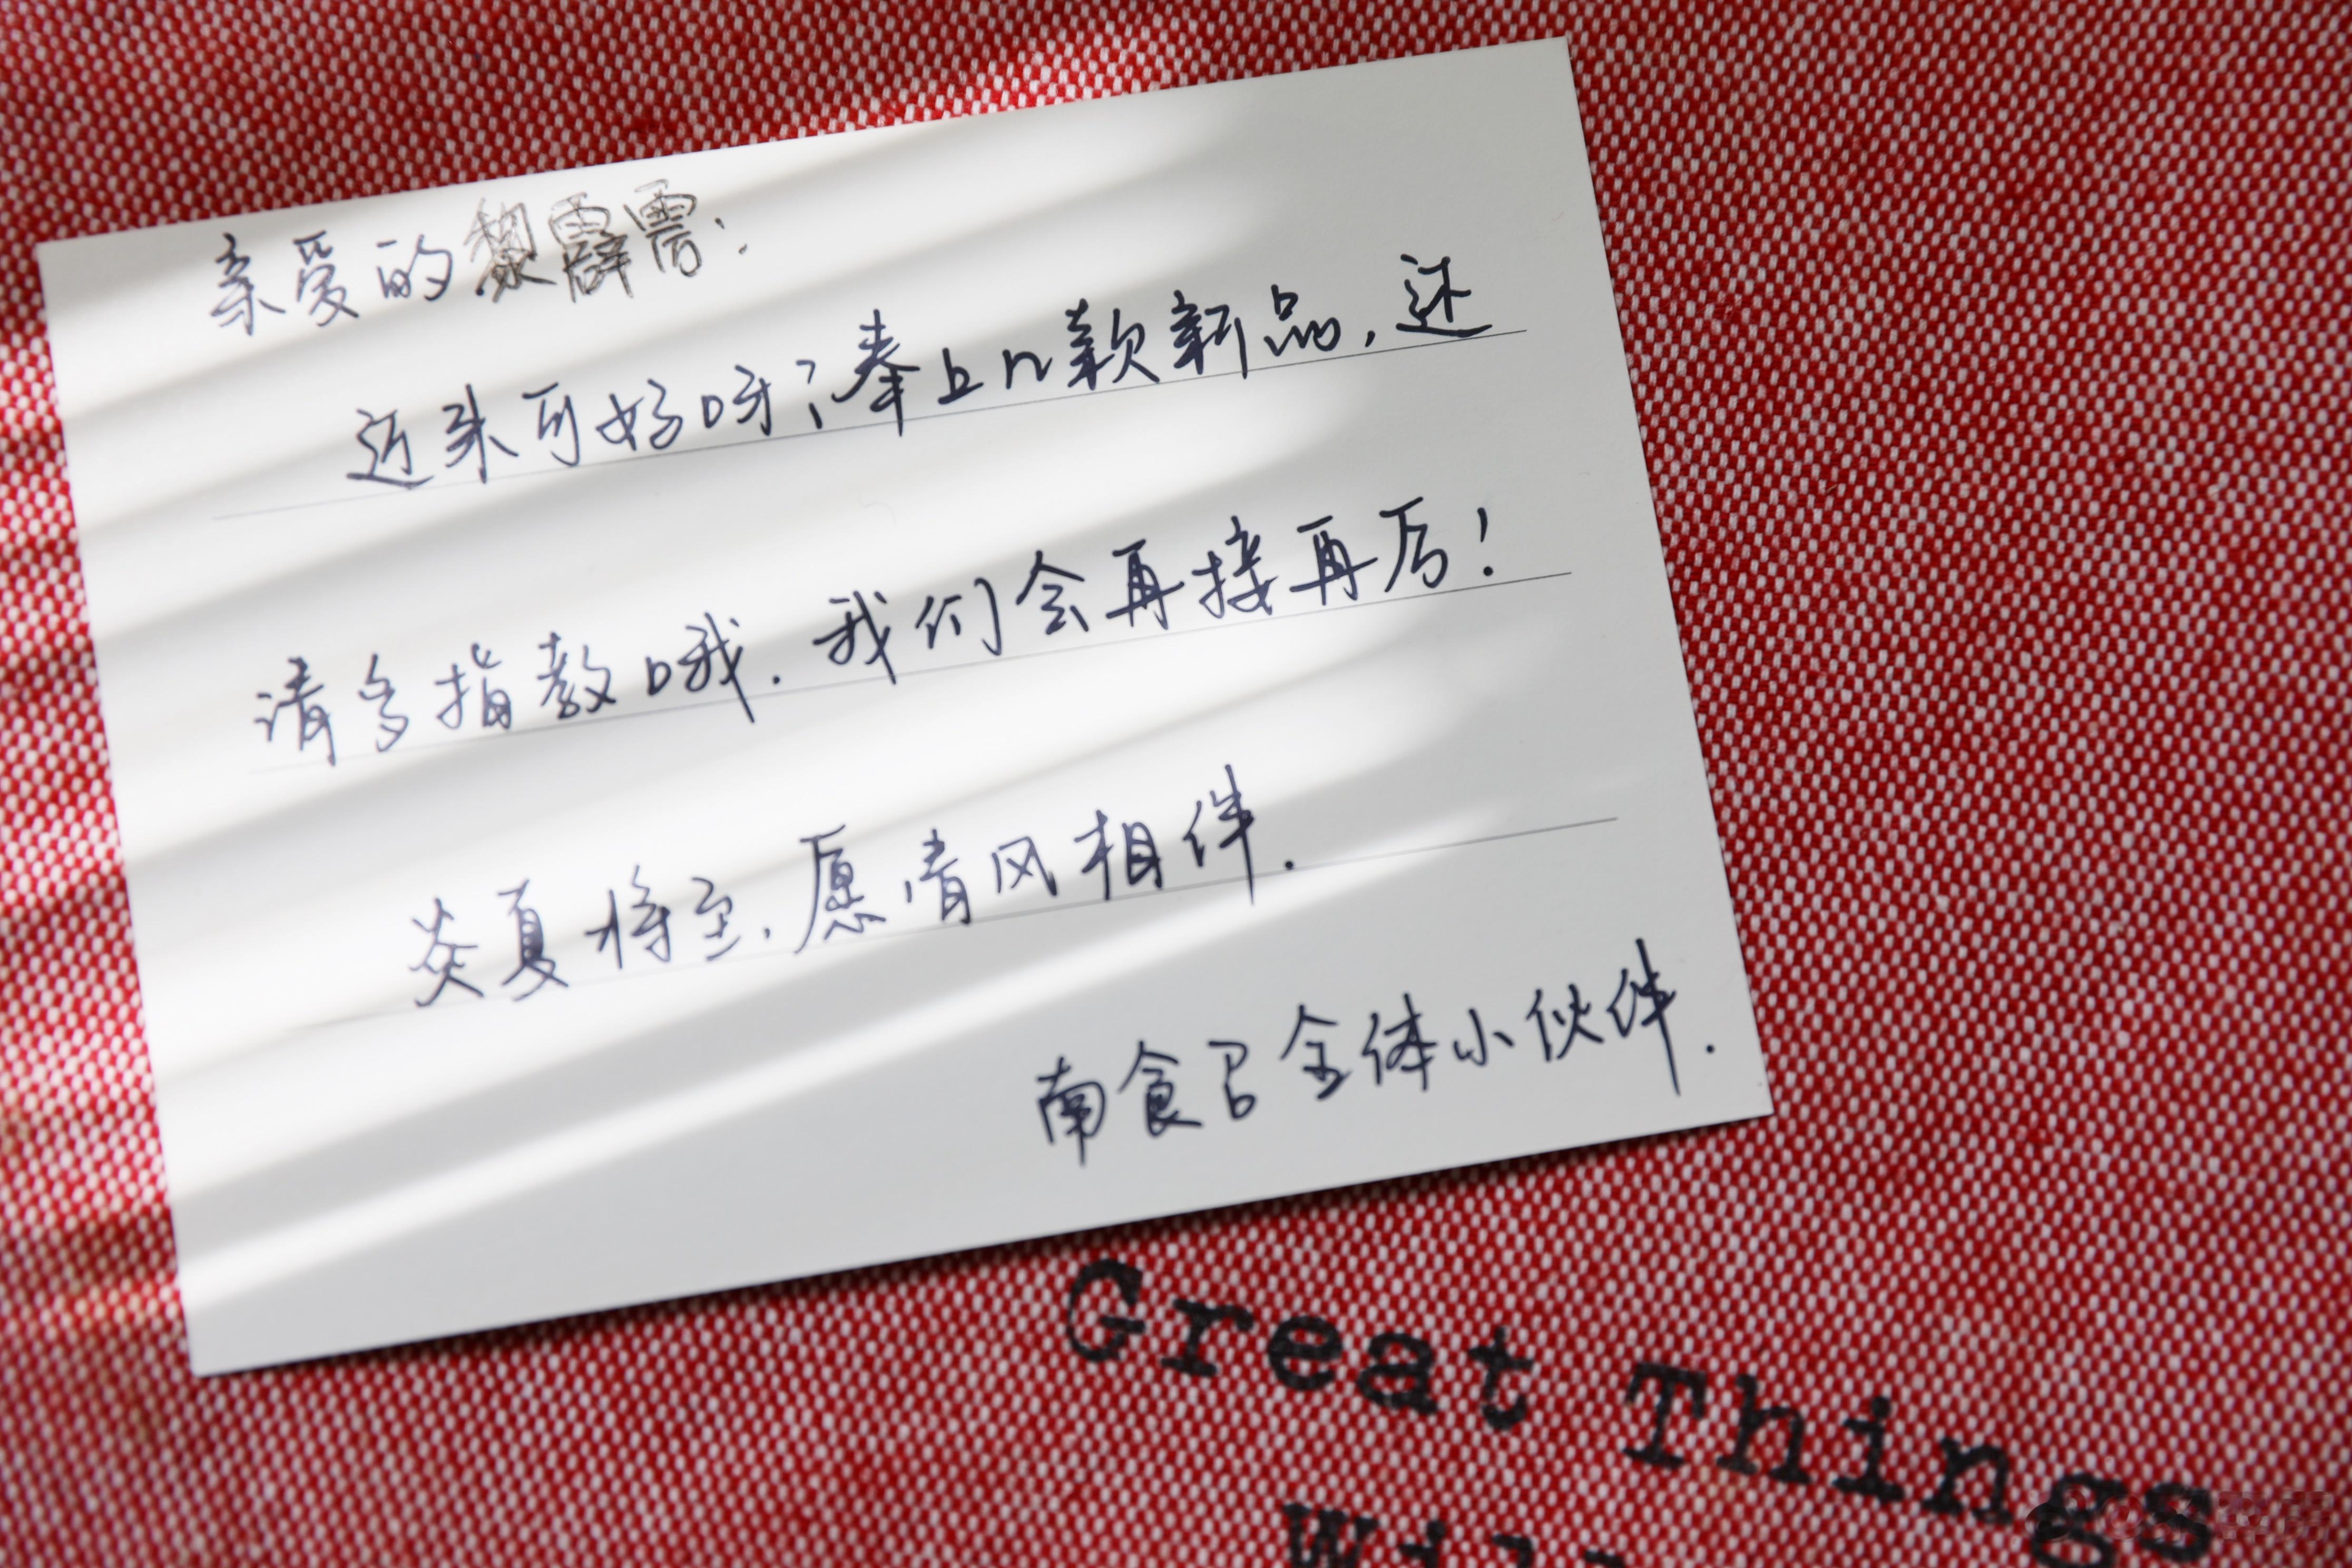 亲爱的黎霹雳：
近来可好呀？奉上几款新品，还
请多指教哦．我们会再接再厉！
炎夏将至，愿清风相伴．
南食召全体小伙伴．
Great Things